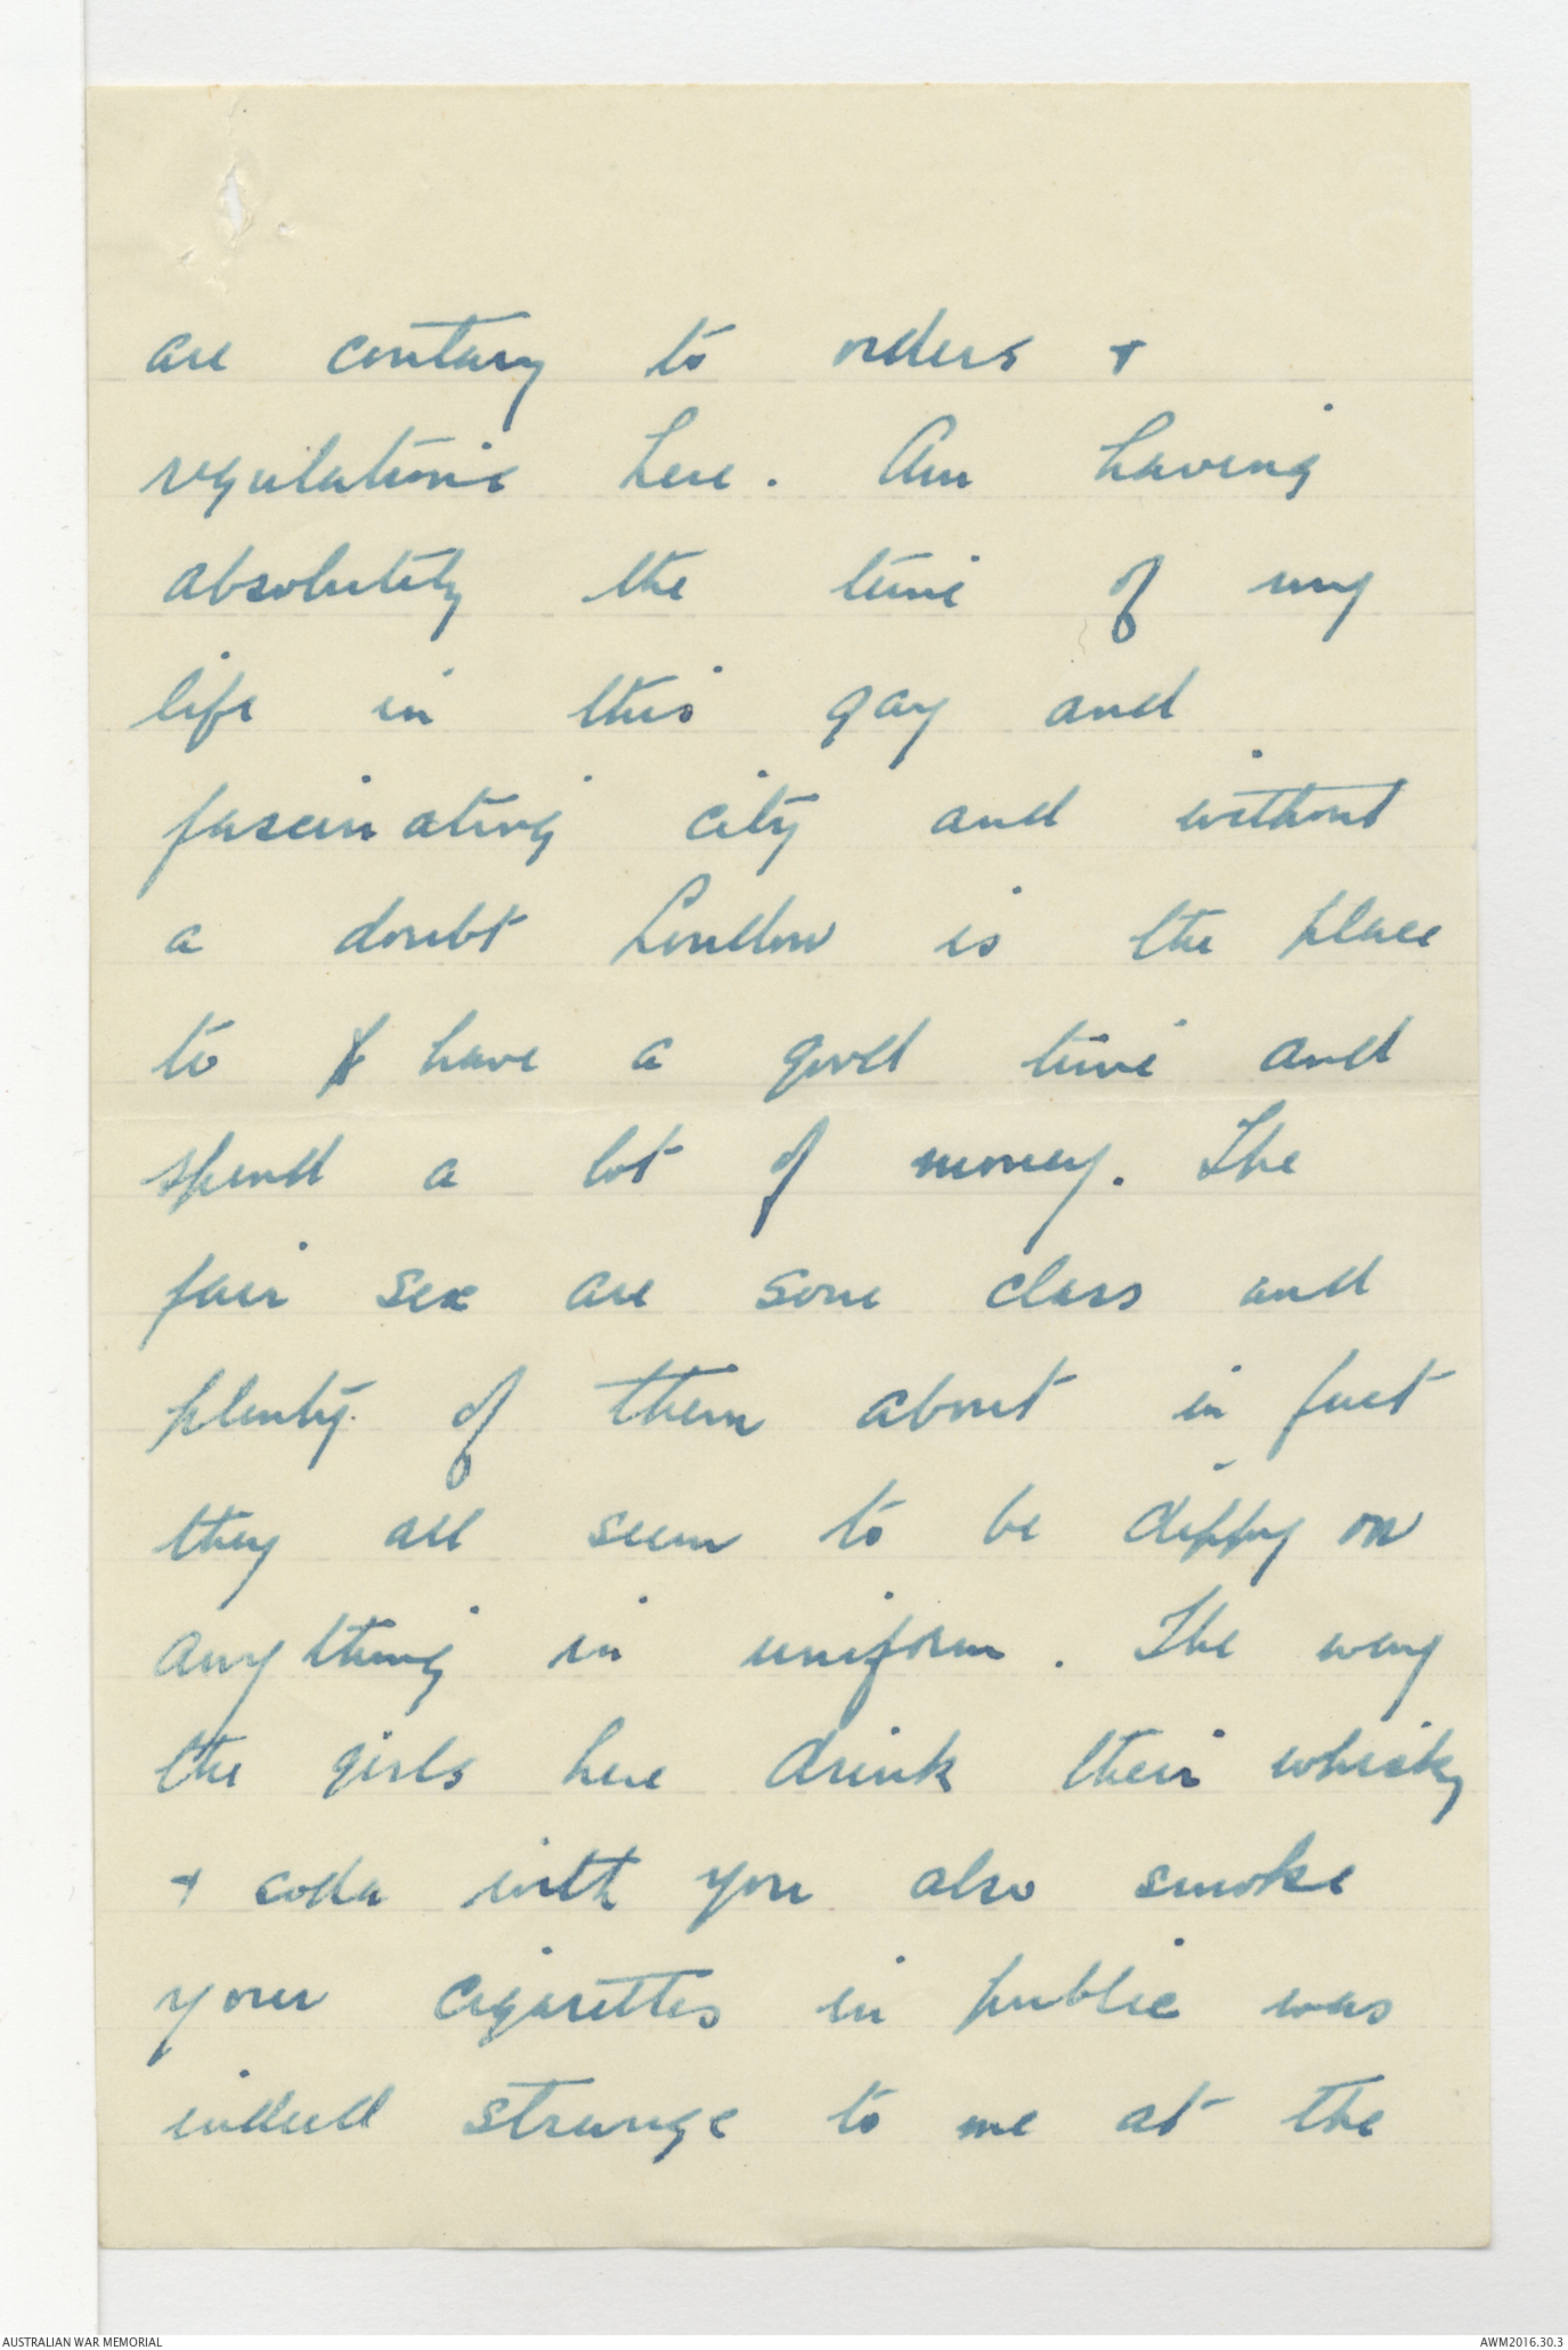 are contary to orders +
regulations here. Am having
absolutely the time of my
life in this gay and
fascinating city and without
a doubt London is the place
to have a good time and
spend a lot of money. The
fair sex are some class and
plenty of them about in fact
they all seem to be dippy on
anything in uniform. The way
the girls here drink their whisky
+ soda with you also smoke
your cigarettes in public was
indeed strange to me at the
AUSTRALIAN WAR MEMORIAL
AWM2016.30.3